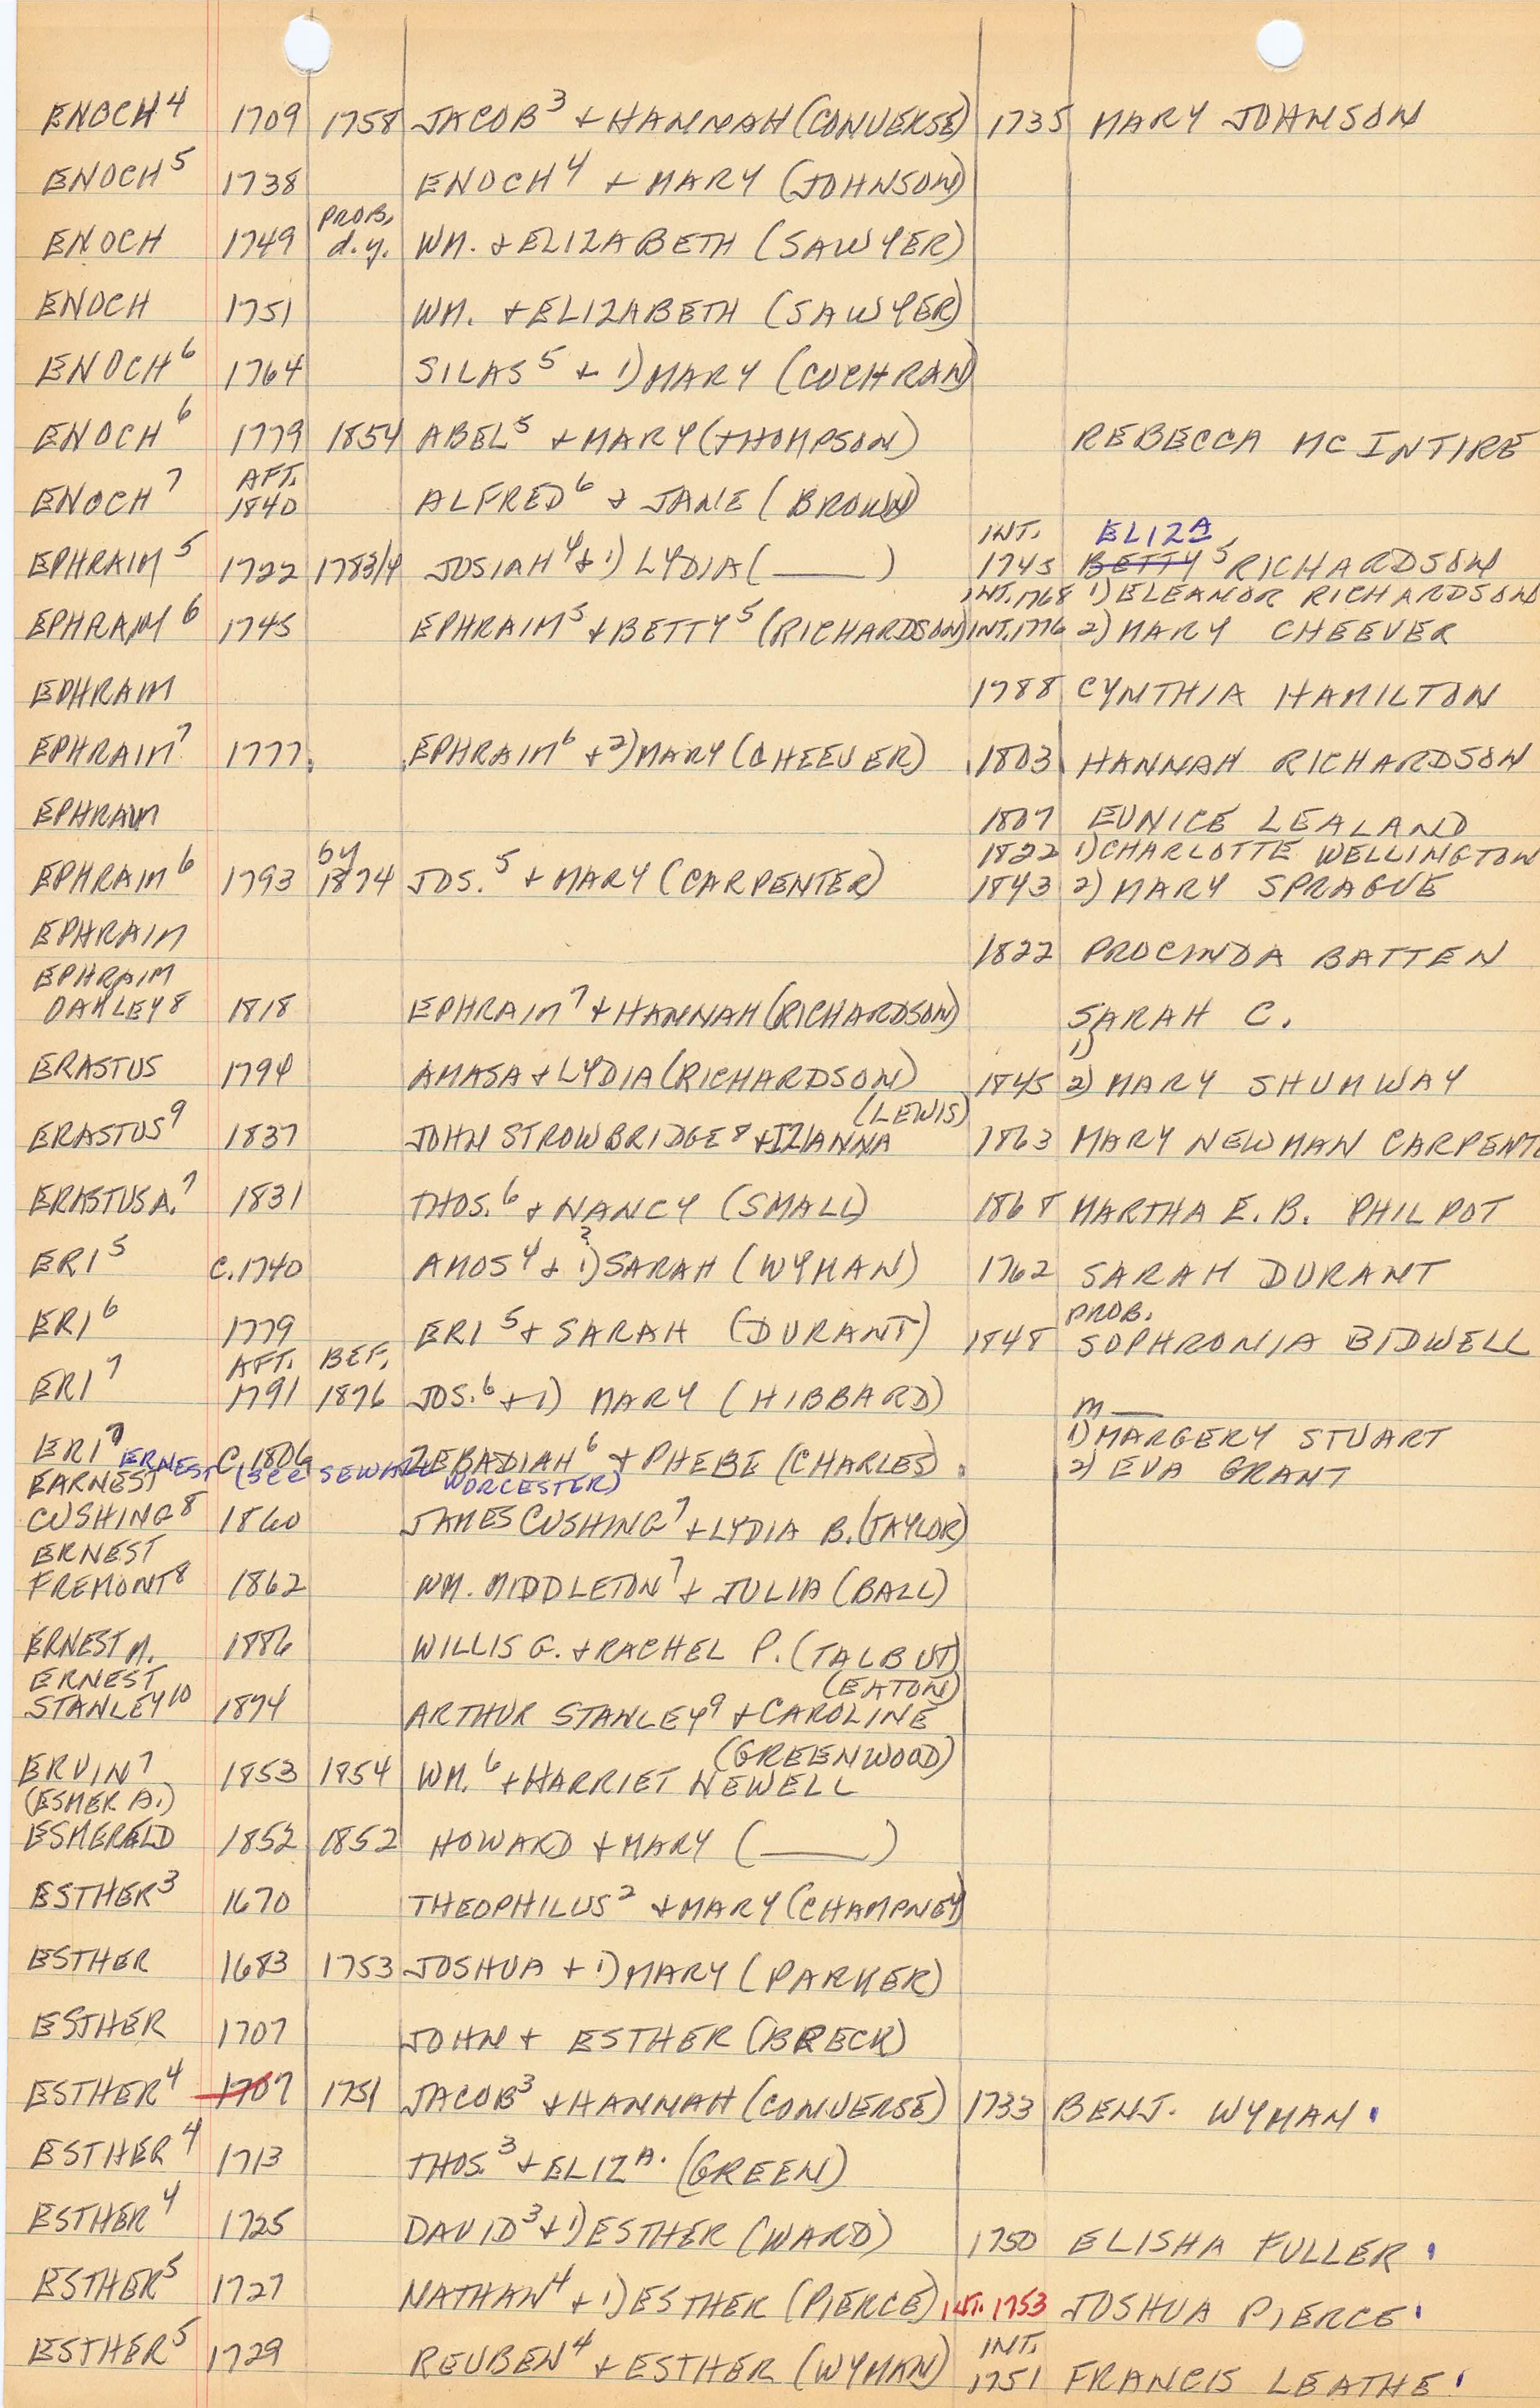 ENOCH⁴ 1709 1758 JACOB³ + HANNAH (CONVERSE) 1735 MARY JOHNSON
ENOCH⁵ 1738 ENOCH⁴ + MARY (JOHNSON)
PROB.
ENOCH 1749 d.y. WM. + ELIZABETH (SAWYER)
ENOCH 1751 WM. + ELIZABETH (SAWYER)
ENOCH⁶ 1764 SILAS⁵ + 1) MARY (COCHRAN)
ENOCH⁶ 1779 1854 ABEL⁵ + MARY (THOMPSON) REBECCA MC INTIRE
AFT.
ENOCH⁷ 1840 ALFRED⁶ + JANE (BROWN)
INT. ELIZA
EPHRAIM⁵ 1722 1783/4 JOSIAH⁴ + 1) LYDIA (____) 1745 BETTY⁵ RICHARDSON
INT. 1768 1) ELEANOR RICHARDSON
EPHRAIM⁶ 1745 EPHRAIM⁵ + BETTY⁵ (RICHARDSON) INT. 1776 2) MARY CHEEVER
EPHRAIM 1788 CYNTHIA HAMILTON
EPHRAIM⁷ 1777 EPHRAIM⁶ + 2) MARY (CHEEVER) 1803 HANNAH RICHARDSON
EPHRAIM 1807 EUNICE LEALAND
by 1822 1) CHARLOTTE WELLINGTON
EPHRAIM⁶ 1793 1874 JOS.⁵ + MARY (CARPENTER) 1843 2) MARY SPRAGUE
EPHRAIM 1822 PROCINDA BATTEN
EPHRAIM
OAKLEY⁸ 1818 EPHRAIM⁷ + HANNAH (RICHARDSON) SARAH C.
1)
ERASTUS 1794 AMASA + LYDIA (RICHARDSON) 1845 2) MARY SHUMWAY
(LEWIS)
ERASTUS⁹ 1837 JOHN STROWBRIDGE⁸ + IZIANNA 1863 MARY NEWMAN CARPENTE
ERASTUS A.⁷ 1831 THOS.⁶ + NANCY (SMALL) 1868 MARTHA E. B. PHILPOT
?
ERI⁵ C. 1740 AMOS⁴ + 1) SARAH (WYMAN) 1762 SARAH DURANT
PROB.
ERI⁶ 1779 ERI⁵ + SARAH (DURANT) 1848 SOPHRONIA BIDWELL
AFT. BEF.
ERI⁷ 1791 1876 JOS.⁶ + 1) MARY (HIBBARD)
m ___
1) MARGERY STUART
ERI⁷ C. 1806 ZEBADIAH⁶ + PHEBE (CHARLES) 2) EVA GRANT
ERNEST (see SEWALL WORCESTER)
EARNEST
CUSHING⁸ 1860 JAMES CUSHING⁷ + LYDIA B. (TAYLOR)
ERNEST
FREMONT⁸ 1862 WM. MIDDLETON⁷ + JULIA (BALL)
ERNEST M. 1886 WILLIS G. + RACHEL P. (TALBUT)
ERNEST (EATON)
STANLEY¹⁰ 1894 ARTHUR STANLEY⁹ + CAROLINE
(GREENWOOD)
ERVIN⁷ 1853 1854 WM.⁶ + HARRIET NEWELL
(ESMER A.)
ESMERELD 1852 1852 HOWARD + MARY (____)
ESTHER³ 1670 THEOPHILUS² + MARY (CHAMPNEY)
ESTHER 1683 1753 JOSHUA + 1) MARY (PARKER)
ESTHER 1707 JOHN + ESTHER (BRECK)
ESTHER⁴ 1707 1751 JACOB³ + HANNAH (CONVERSE) 1733 BENJ. WYMAN
ESTHER⁴ 1713 THOS.³ + ELIZA. (GREEN)
ESTHER⁴ 1725 DAVID³ + 1) ESTHER (WARD) 1750 ELISHA FULLER
ESTHER⁵ 1727 NATHAN⁴ + 1) ESTHER (PIERCE) INT. 1753 JOSHUA PIERCE
INT.
ESTHER⁵ 1729 REUBEN⁴ + ESTHER (WYMAN) 1751 FRANCIS LEATHE